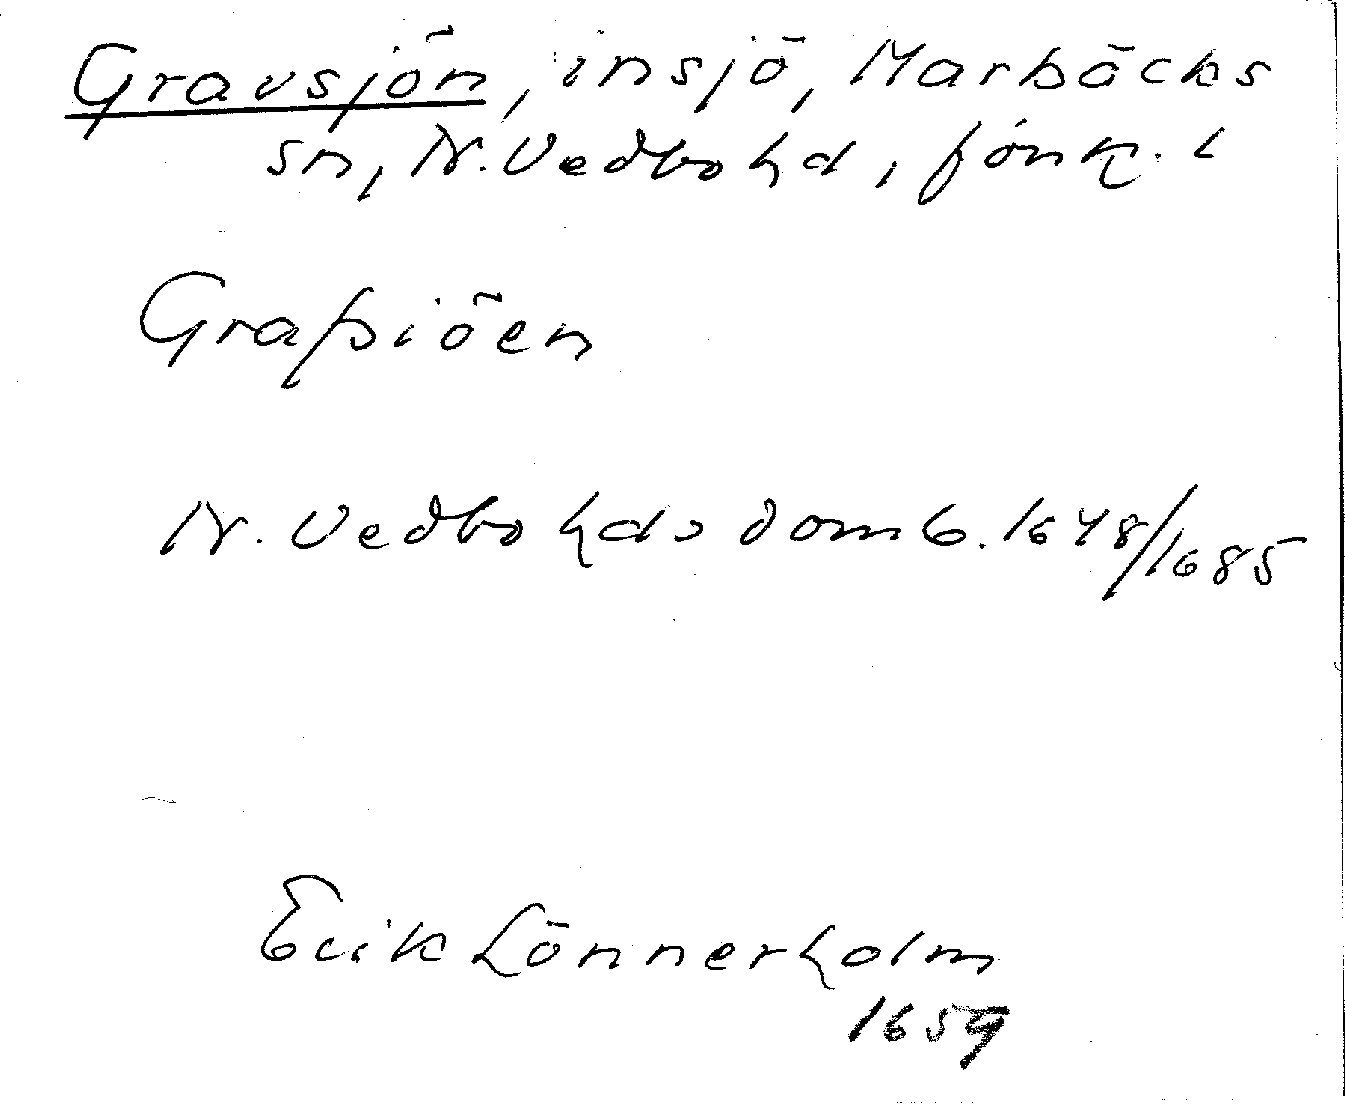 Gravsjön, insjö, Marbäcks
sn, N. Vedbo hd, Jönk. l
Graßiöen
N. Vedbo hds domb. 1648/1685
Erik Lönnerholm
1659